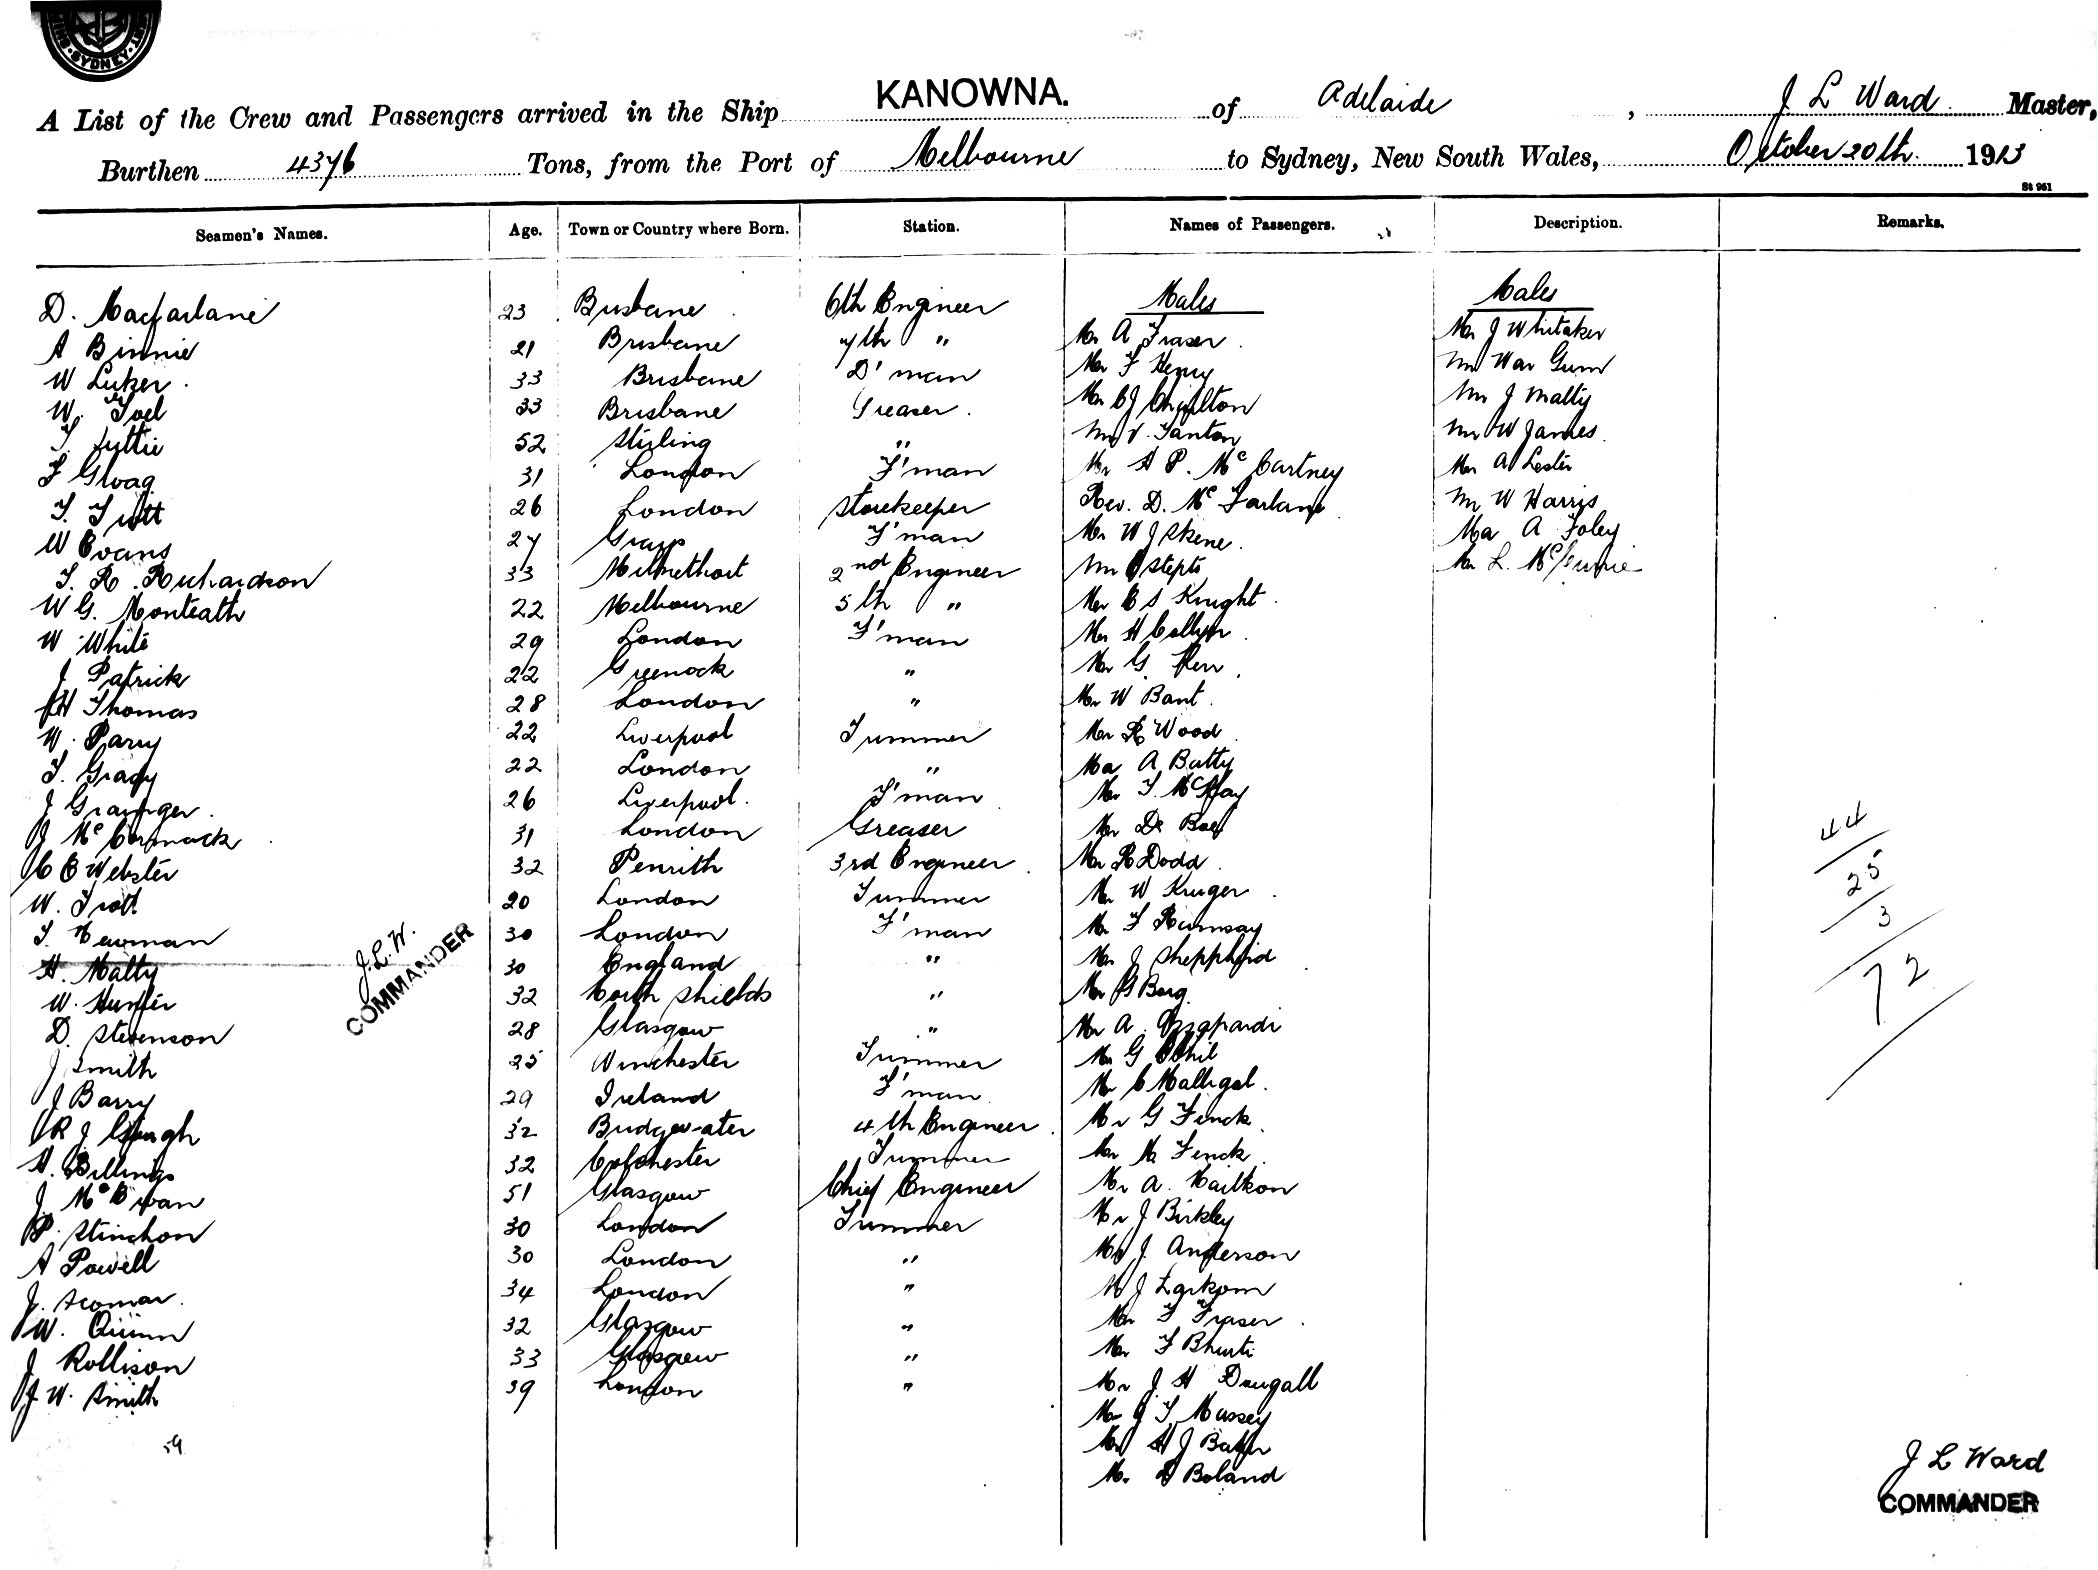 SYDNEY
A List of the Crew and Passengers arrived in the Ship KANOWNA. of Adelaide, J L Ward Master,
Burthen 4376 Tons, from the Port of Melbourne to Sydney, New South Wales, October 20th. 1913
St 961
Seamen's Names. Age. Town or Country where Born. Station. Names of Passengers. Description. Remarks.
D. Macfarlane 23 Brisbane 6th Engineer Males Males
A Binnie 21 Brisbane 7th " Mr A Fraser Mr J Whitaker
W Luker 33 Brisbane D'man Mr F Henry Mr War Gum
W. Joel 33 Brisbane Greaser Mr C J Chilton Mr J Malty
T. Lyttie 52 Stirling " Mr V. Tanton Mr W James
F Gwag 31 London F'man Mr A P. McCartney Mr A Lester
T. Trott 26 London Storekeeper Rev. D. McFarlane Mr W Harris
W Evans 27 Grays F'man Mr W J Skene Mr A Foley
T. R. Richardson 33 2nd Engineer Mr Mr L.
W G. Monteath 22 Melbourne 5th " Mr C S Knight
W White 29 London F'man Mr H
J Patrick 22 Greenock " Mr G. Kerr
H Thomas 28 London " Mr W Bant
W. Parry 22 Liverpool Trimmer Mr R Wood
T. Grady 22 London " Mr A Batty
J Grainger 26 Liverpool F'man Mr T. McKay
J McCormack 31 London Greaser Mr De
C E Webster 32 Penrith 3rd Engineer Mr R Dodd
W. Trott 20 London Trimmer Mr W Kruger
T. Newman 30 London F'man Mr F Rumsay
H. Malty 30 England " Mr J Shepphird
W. Hunter 32 North Shields " Mr G Borg
D. Stevenson 28 Glasgow " Mr A. Azzopardi
J Smith 25 Winchester Trimmer Mr G
J Barry 29 Ireland F'man Mr C
R J Gough 32 Bridgewater 4th Engineer Mr G Finck
H. Billings 32 Colchester Trimmer Mr M Finck
J. McEwan 51 Glasgow Chief Engineer Mr A.
P. Stinchon 30 London Trimmer Mr J Birkley
A Powell 30 London " Mr J. Anderson
J. 34 London " Mr J Larkom
W. Quinn 32 Glasgow " Mr F Fraser
J Rollison 33 Glasgow " Mr F
J W. Smith 39 London " Mr J H Dougall
Mr J T Massey
Mr H J
Mr Boland
J.L.W.
COMMANDER
44
25
3
72
J L Ward
COMMANDER